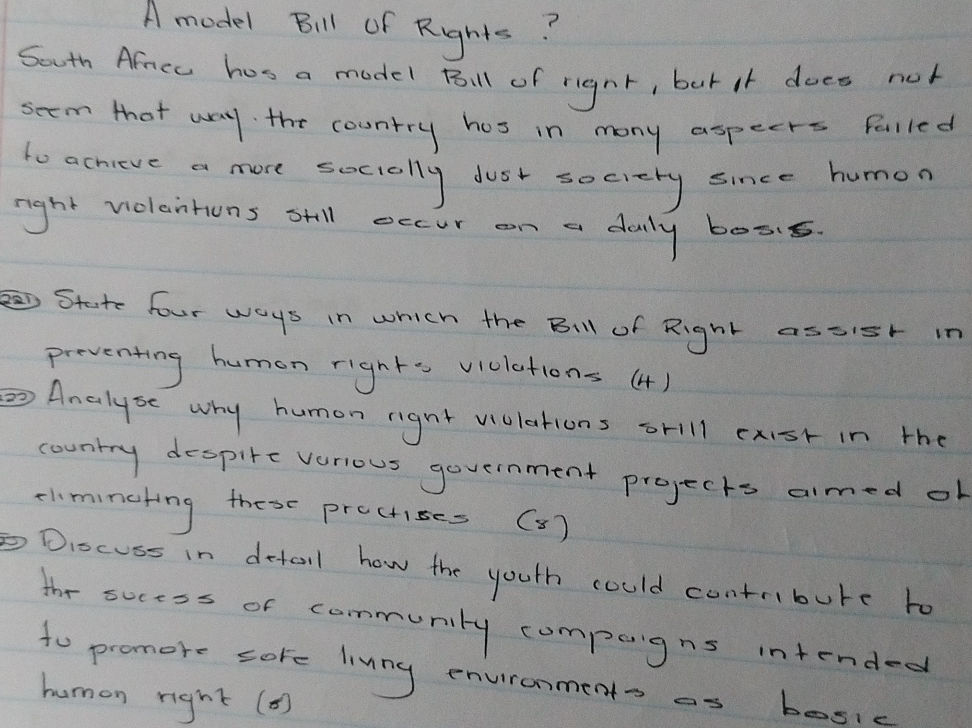 A model Bill of Rights ?
South Africa has a model Bill of right, but it does not
seem that way. the country has in many aspects failed
to achieve a more socially just society since human
right violantions still occur on a daily basis.
221 State four ways in which the Bill of Right assist in
preventing human rights violations (4)
222 Analyse why human right violations still exist in the
country despite various government projects aimed at
eliminating these practises (8)
Discuss in detail how the youth could contribute to
the sucess of community campaigns intended
to promote safe living environments as basic
human right (8)